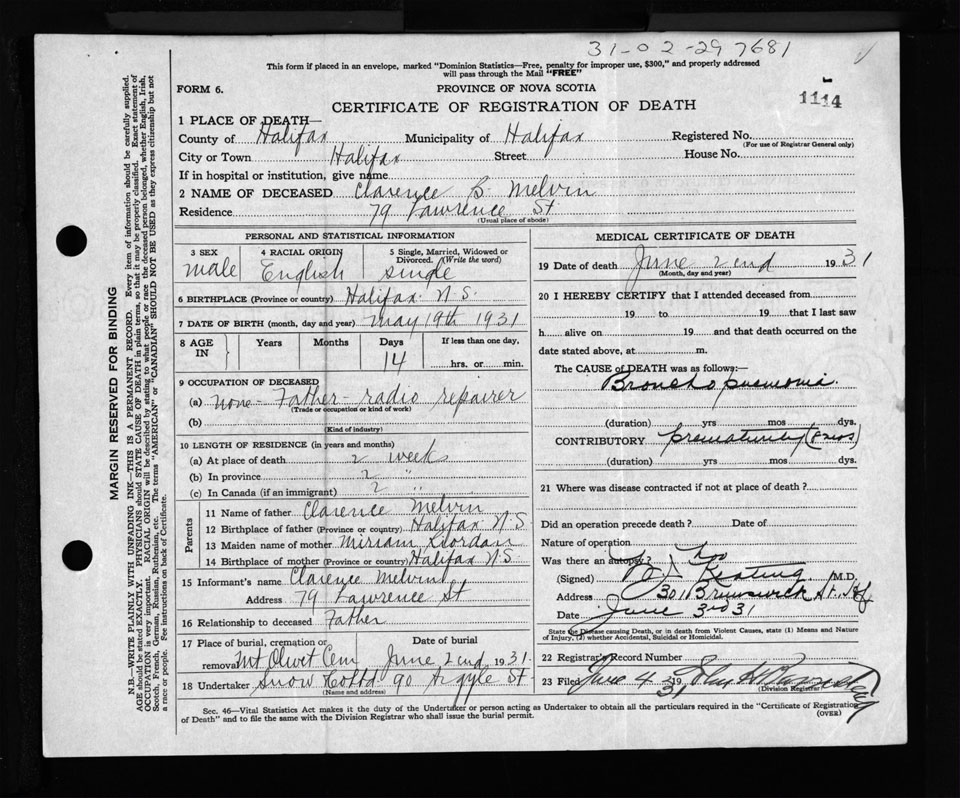 31-02-29 7681
This form if placed in an envelope, marked "Dominion Statistics—Free, penalty for improper use, $300," and properly addressed
will pass through the Mail "FREE"
FORM 6.
PROVINCE OF NOVA SCOTIA
CERTIFICATE OF REGISTRATION OF DEATH
1114
1 PLACE OF DEATH—
County of Halifax Municipality of Halifax Registered No.
(For use of Registrar General only)
City or Town Halifax Street House No.
If in hospital or institution, give name
2 NAME OF DECEASED Clarence B. Melvin
Residence 79 Lawrence St.
(Usual place of abode)
PERSONAL AND STATISTICAL INFORMATION
3 SEX 4 RACIAL ORIGIN 5 Single, Married, Widowed or
Divorced. (Write the word)
male English single
6 BIRTHPLACE (Province or country) Halifax N.S.
7 DATE OF BIRTH (month, day and year) May 19th 1931
8 AGE IN Years Months Days If less than one day,
14 hrs. or min.
9 OCCUPATION OF DECEASED
(a) none - Father - radio repairer
(Trade or occupation or kind of work)
(b)
(Kind of industry)
10 LENGTH OF RESIDENCE (in years and months)
(a) At place of death 2 weeks
(b) In province 2 "
(c) In Canada (if an immigrant) 2 "
Parents
11 Name of father Clarence Melvin
12 Birthplace of father (Province or country) Halifax N.S.
13 Maiden name of mother Miriam Riordan
14 Birthplace of mother (Province or country) Halifax N.S.
15 Informant's name Clarence Melvin
Address 79 Lawrence St
16 Relationship to deceased Father
17 Place of burial, cremation or Date of burial
removal Mt Olivet Cem June 2nd 1931.
18 Undertaker Snow Co Ltd 90 Argyle St
(Name and address)
MEDICAL CERTIFICATE OF DEATH
19 Date of death June 2nd 1931
(Month, day and year)
20 I HEREBY CERTIFY that I attended deceased from
19 to 19 that I last saw
h alive on 19 and that death occurred on the
date stated above, at m.
The CAUSE of DEATH was as follows:—
Broncho pneumonia.
(duration) yrs mos dys.
CONTRIBUTORY prematurity (8 mos)
(duration) yrs mos dys.
21 Where was disease contracted if not at place of death?
Did an operation precede death? Date of
Nature of operation
Was there an autopsy? no
(Signed) Keating M.D.
Address 301 Brunswick St. Hfx
Date June 3rd 31
State the Disease causing Death, or in death from Violent Causes, state (1) Means and Nature
of Injury, (2) whether Accidental, Suicidal or Homicidal.
22 Registrar's Record Number
23 Filed June 4 1931 John
(Division Registrar)
Sec. 46—Vital Statistics Act makes it the duty of the Undertaker or person acting as Undertaker to obtain all the particulars required in the "Certificate of Registration
of Death" and to file the same with the Division Registrar who shall issue the burial permit.
(OVER)
MARGIN RESERVED FOR BINDING
N.B.—WRITE PLAINLY WITH UNFADING INK—THIS IS A PERMANENT RECORD. Every item of information should be carefully supplied.
AGE should be stated EXACTLY. PHYSICIANS should STATE CAUSE OF DEATH in plain terms, so that it may be properly classified. Exact statement of
OCCUPATION is very important. RACIAL ORIGIN will be described by stating to what people or race the deceased person belonged, whether English, Irish,
Scotch, French, German, Russian, Ruthenian, etc. The terms "AMERICAN" or "CANADIAN" SHOULD NOT BE USED as they express citizenship but not
a race or people. See instructions on back of Certificate.